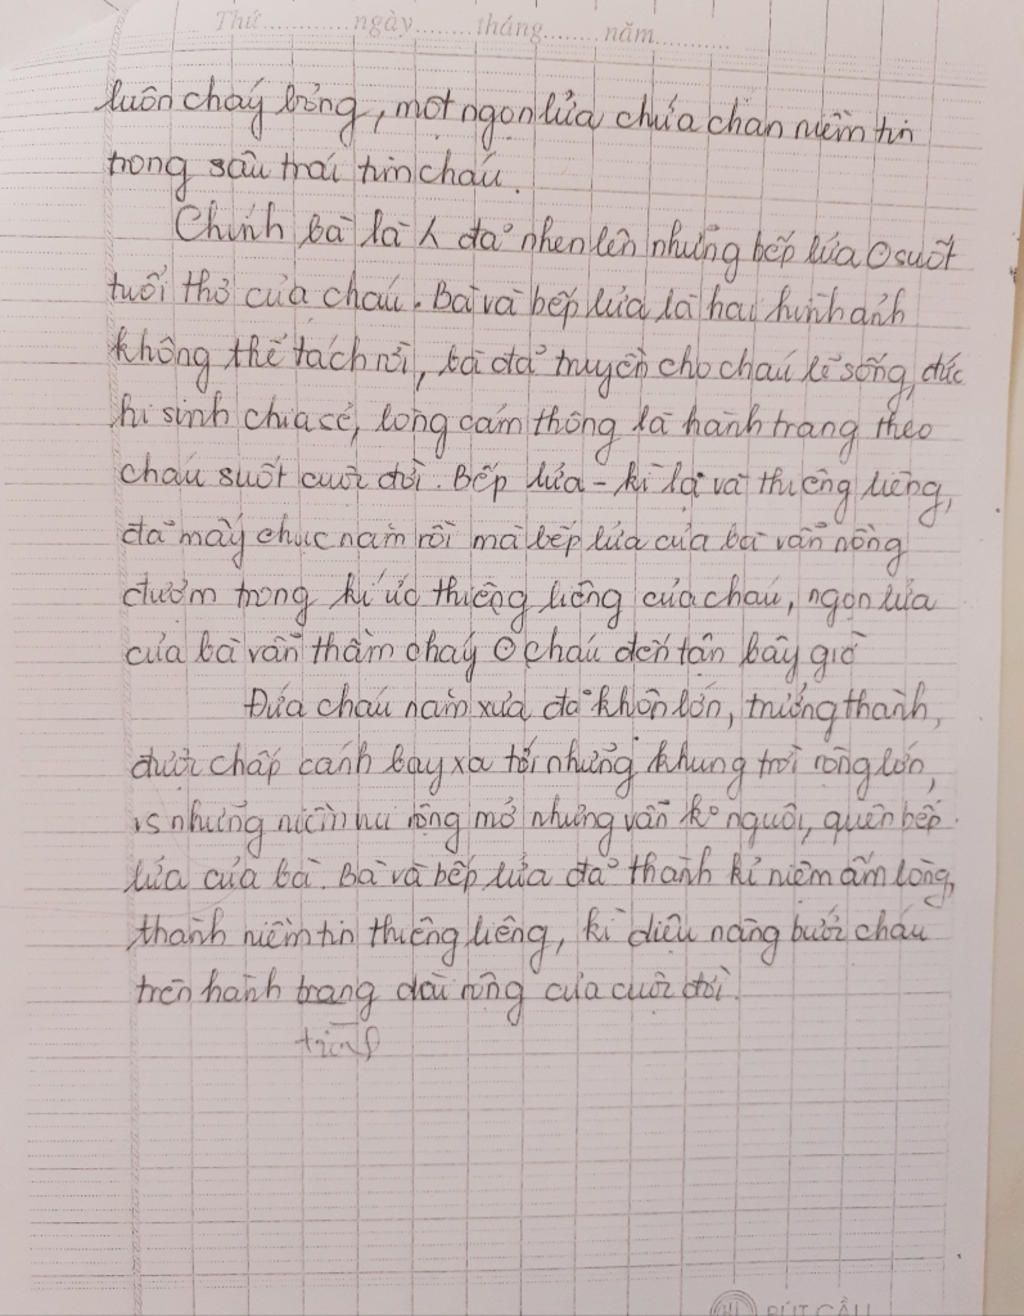 Thứ ngày tháng năm
luôn cháy bỏng, một ngọn lửa chứa chan niềm tin
trong sâu trái tim cháu.
Chính bà là người đã nhen lên những bếp lửa suốt
tuổi thơ của cháu. Bà và bếp lửa là hai hình ảnh
không thể tách rời, bà đã truyền cho cháu lẽ sống, đức
hi sinh chia sẻ, lòng cảm thông là hành trang theo
cháu suốt cuộc đời. Bếp lửa - kì lạ và thiêng liêng,
đã mấy chục năm rồi mà bếp lửa của bà vẫn nồng
đượm trong kí ức thiêng liêng của cháu, ngọn lửa
của bà vẫn thầm cháy cháu đến tận bây giờ
Đứa cháu năm xưa đã khôn lớn, trưởng thành,
được chắp cánh bay xa tới những khung trời rộng lớn,
những niềm vui rộng mở nhưng vẫn ko nguôi, quên bếp
lửa của bà. Bà và bếp lửa đã thành kỉ niệm ấm lòng,
thành niềm tin thiêng liêng, kì diệu nâng bước cháu
trên hành trang dài rộng của cuộc đời.
trình
BÚT CẦU